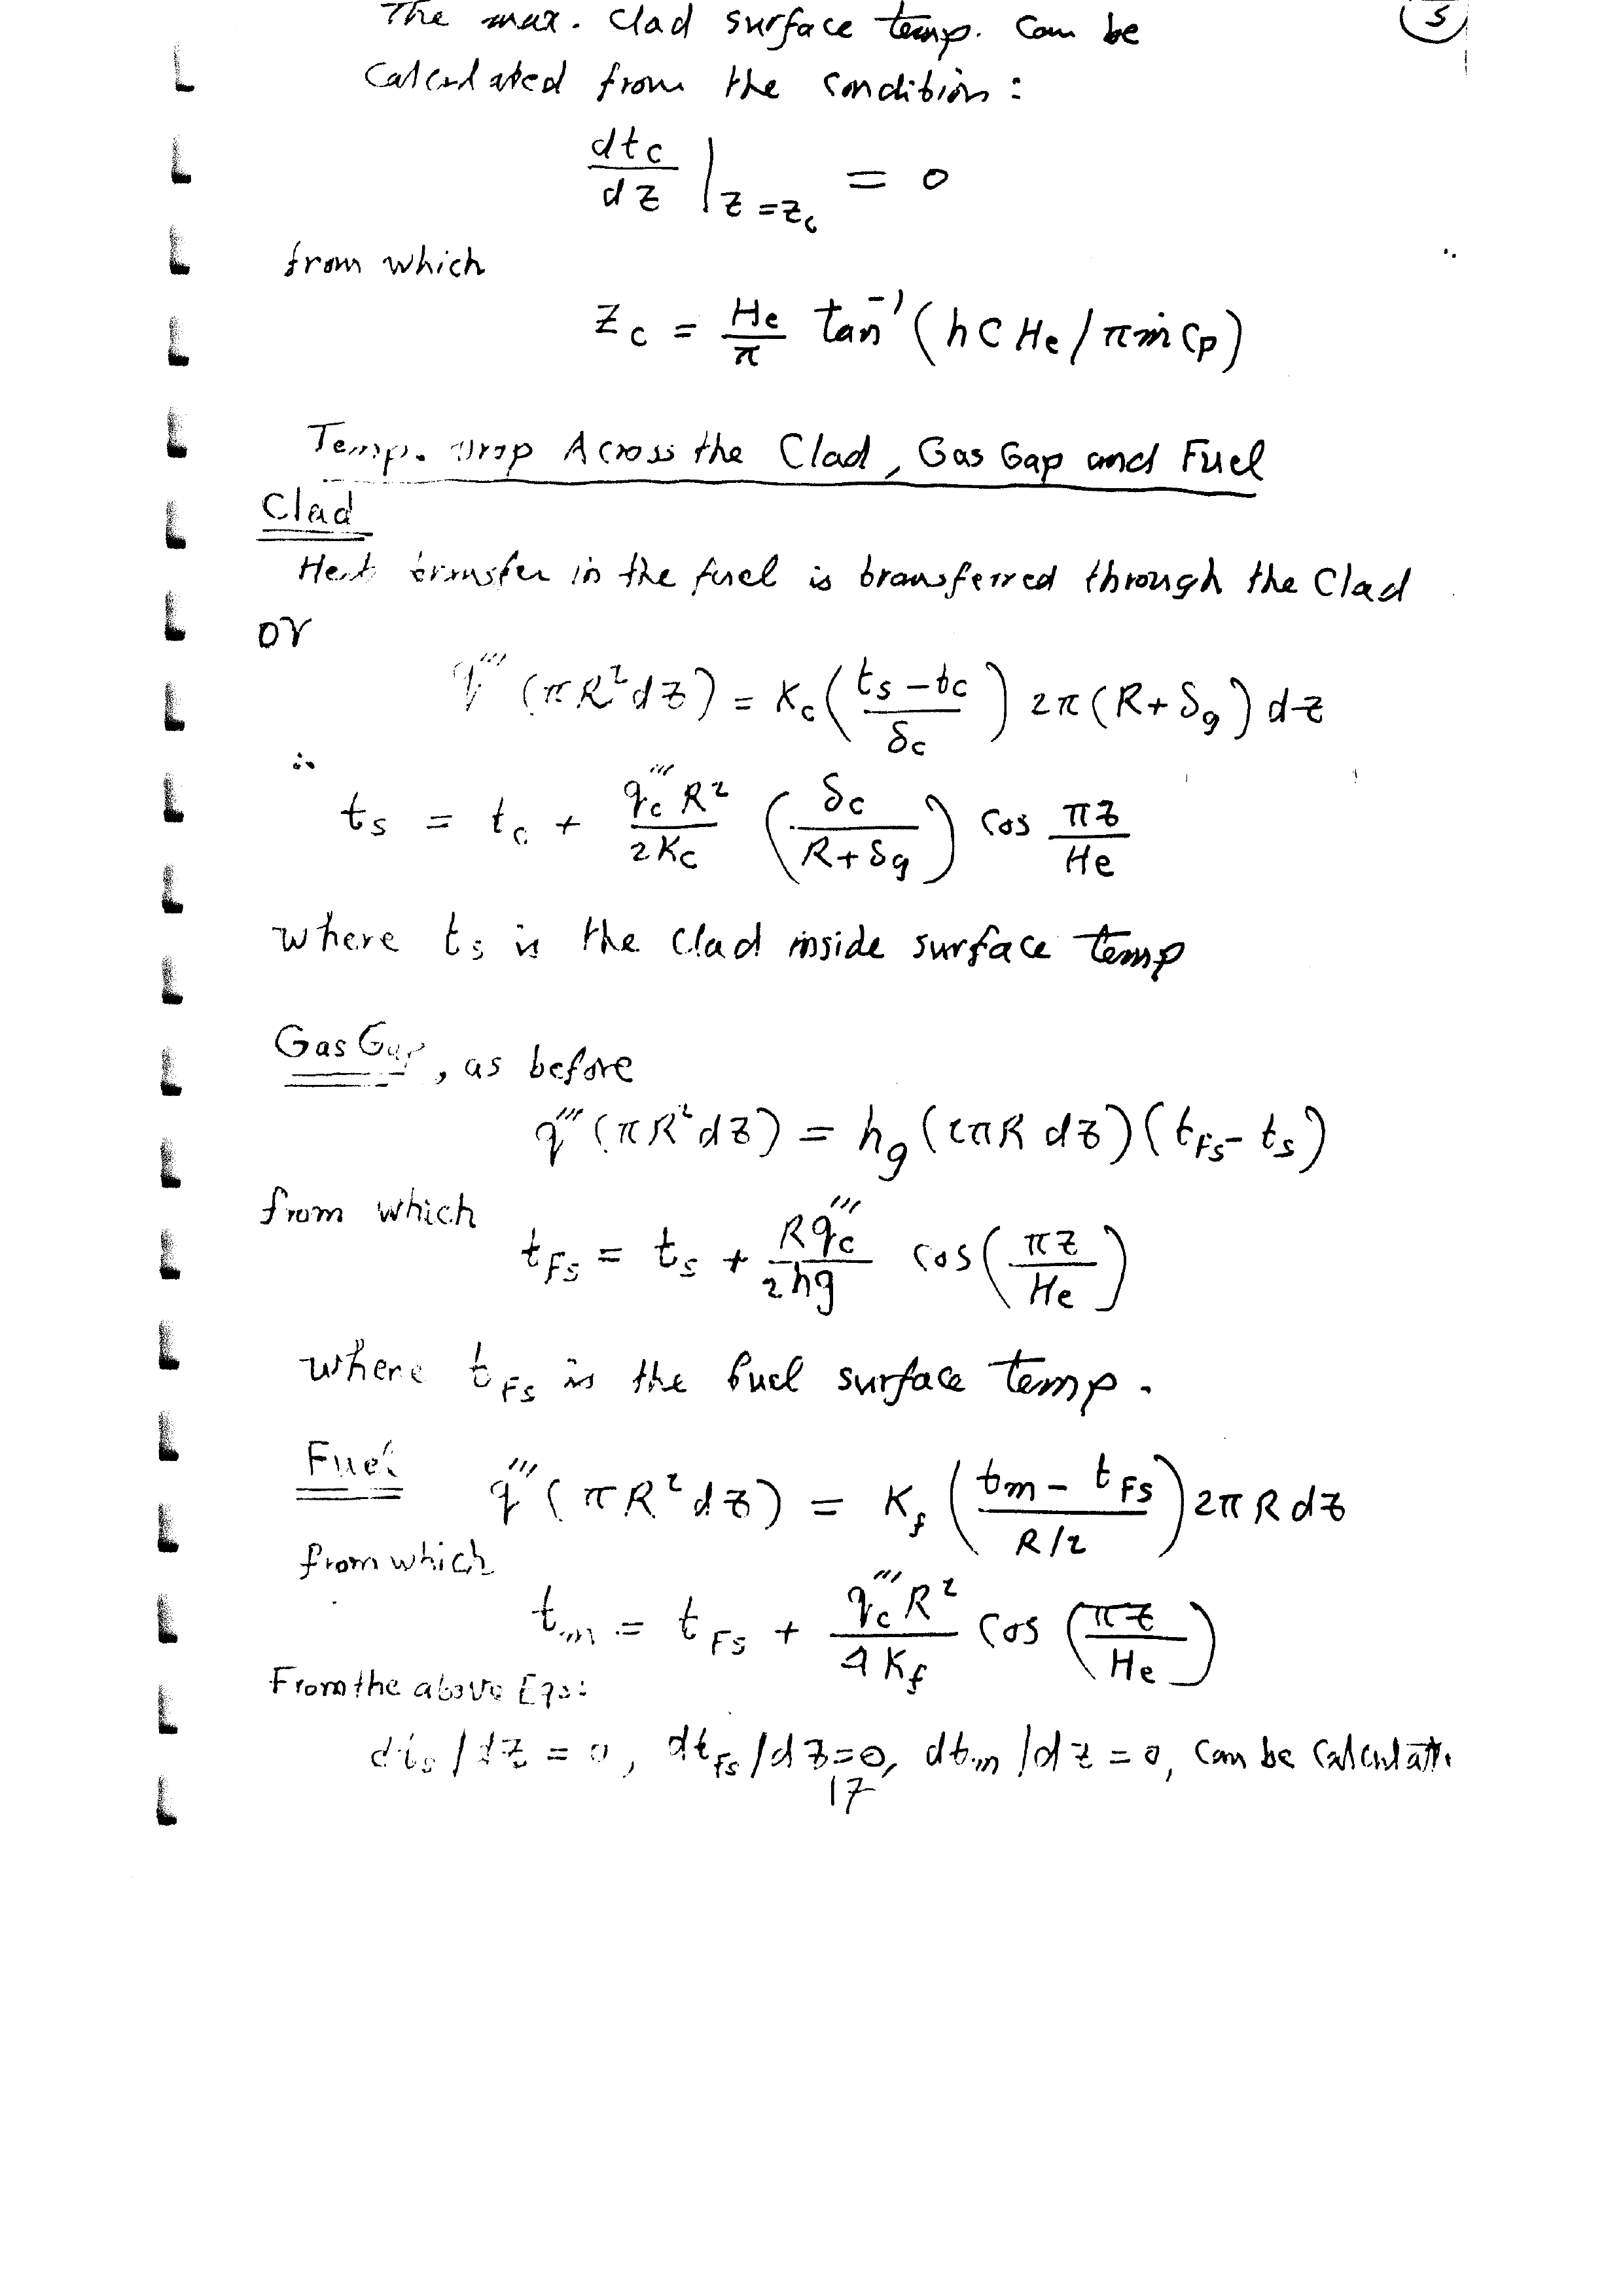 The max. Clad surface temp. Can be
5
Calculated from the condition:
dtc/dz |z=zc = 0
from which
Zc = He/π tan⁻¹(hCHe/πṁCp)
Temp. Drop Across the Clad, Gas Gap and Fuel
Clad
Heat transfer in the fuel is transferred through the Clad
or
q''' (πR²dz) = Kc (ts-tc / δc) 2π(R+δg) dz
∴
ts = tc + qc'''R²/2Kc (δc / R+δg) Cos πz/He
where ts is the Clad inside surface temp
Gas Gap, as before
q''' (πR²dz) = hg (2πR dz)(tFs-ts)
from which
tFs = ts + Rqc'''/2hg cos(πz/He)
where tFs is the fuel surface temp.
Fuel q''' (πR²dz) = Kf (tm - tFs / R/2) 2πR dz
from which
tm = tFs + qc'''R²/4Kf Cos (πz/He)
From the above Eqs:
dts/dz = 0, dtFs/dz=0, dtm/dz = 0, Can be Calculate
17